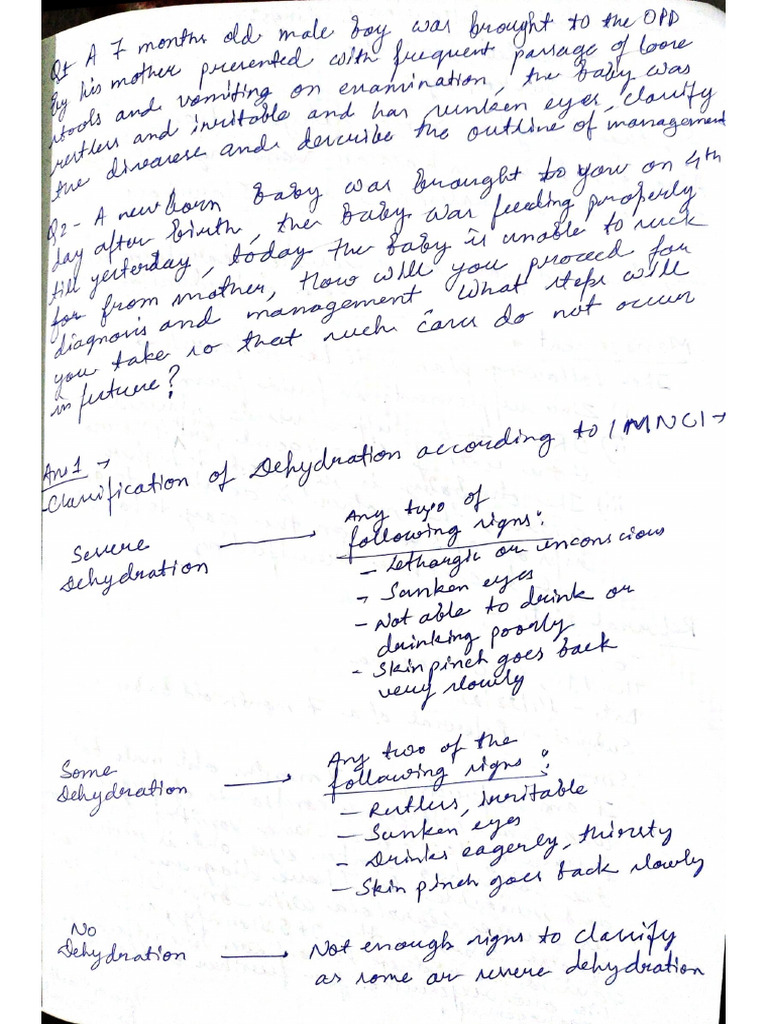 Q1 A 7 months old male boy was brought to the OPD
by his mother presented with frequent passage of loose
stools and vomiting on examination, the baby was
restless and irritable and has sunken eyes, classify
the disease and describe the outline of management
Q2- A new born baby was brought to you on 4th
day after birth, the baby was feeding properly
till yesterday, today the baby is unable to suck
for from mother, How will you proceed for
diagnosis and management What steps will
you take so that such cases do not occur
in future?
Ans 1 →
-Classification of Dehydration according to IMNCI →
Severe Dehydration → Any two of
following signs:
- Lethargic or unconscious
- Sunken eyes
- Not able to drink or
drinking poorly
- Skin pinch goes back
very slowly
Some Dehydration → Any two of the
following signs:
- Restless, irritable
- Sunken eyes
- Drinks eagerly, thirsty
- Skin pinch goes back slowly
No Dehydration → Not enough signs to classify
as some or severe dehydration